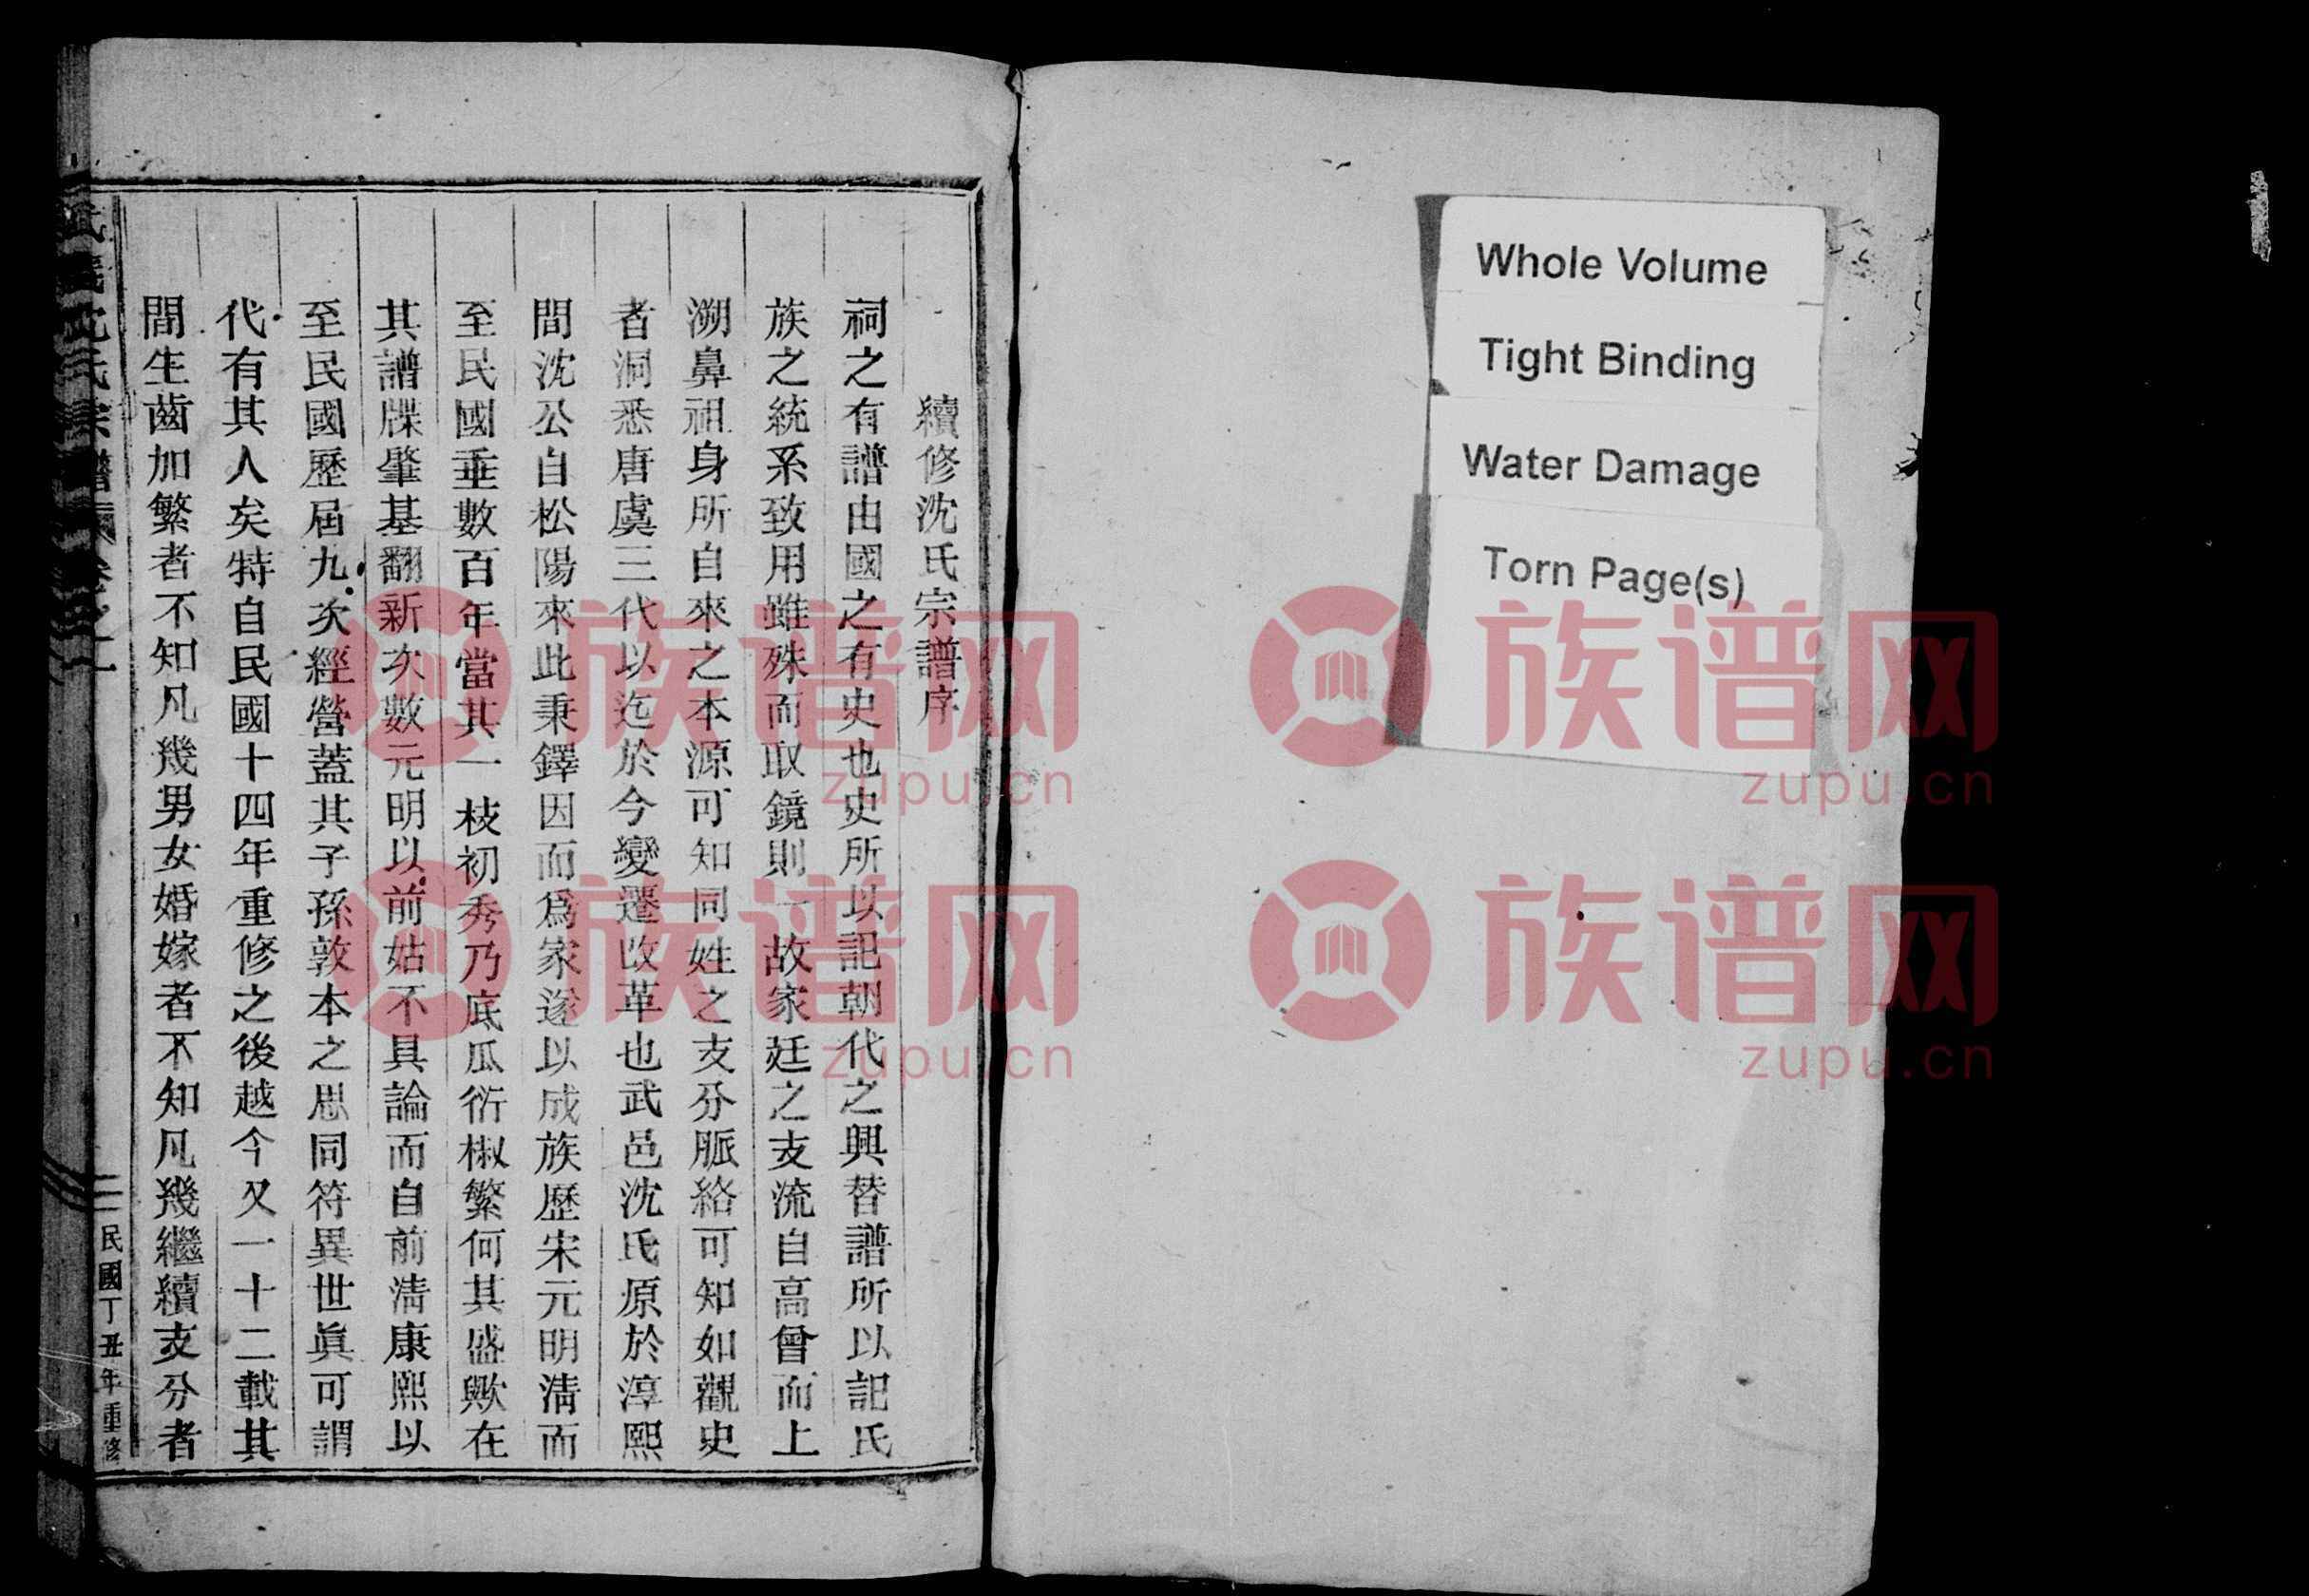 Whole Volume
Tight Binding
Water Damage
Torn Page(s)
續修沈氏宗譜序
祠之有譜由國之有史也史所以記朝代之興替譜所以記氏
族之統系致用雖殊而取鏡則一故家廷之支流自高曾而上
溯鼻祖身所自來之本源可知同姓之支分脈絡可知如觀史
者洞悉唐虞三代以迄於今變遷改革也武邑沈氏原於淳熙
間沈公自松陽來此秉鐸因而爲家遂以成族歷宋元明清而
至民國垂數百年當其一枝初秀乃底瓜衍椒繁何其盛歟在
其譜牒肇基翻新次數元明以前姑不具論而自前清康熙以
至民國歷屆九次經營蓋其子孫敦本之思同符異世眞可謂
代有其人矣特自民國十四年重修之後越今又一十二載其
間生齒加繁者不知凡幾男女婚嫁者不知凡幾繼續支分者
沈氏宗譜
民國丁丑年重修
族谱网
zupu.cn
族谱网
zupu.cn
族谱网
zupu.cn
族谱网
zupu.cn